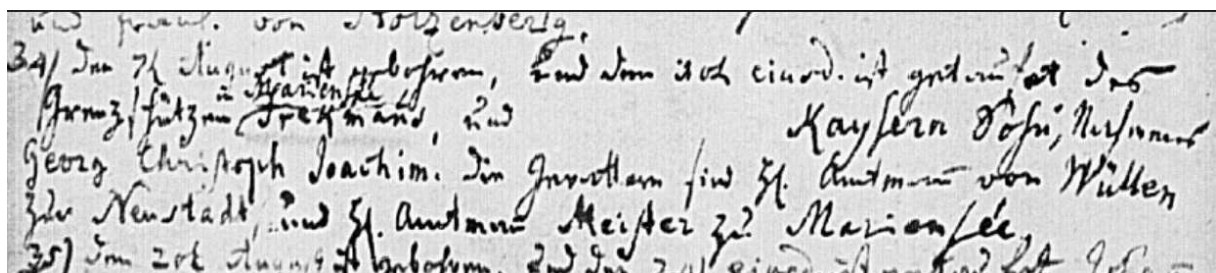 und von Stolzenberg.
34) den 7t August ist gebohren, und den 10t eiusd. ist getaufet des
Grenzschützen zu Mariensee Trekmann, und Kaysern Sohn, Nahmens
Georg Christoph Joachim. die Gevattern sind H. Amtmann von Wüllen
zur Neustadt, und H. Amtmann Meister zu Mariensee.
35) den 20t August ist gebohren, und den eiusd. ist